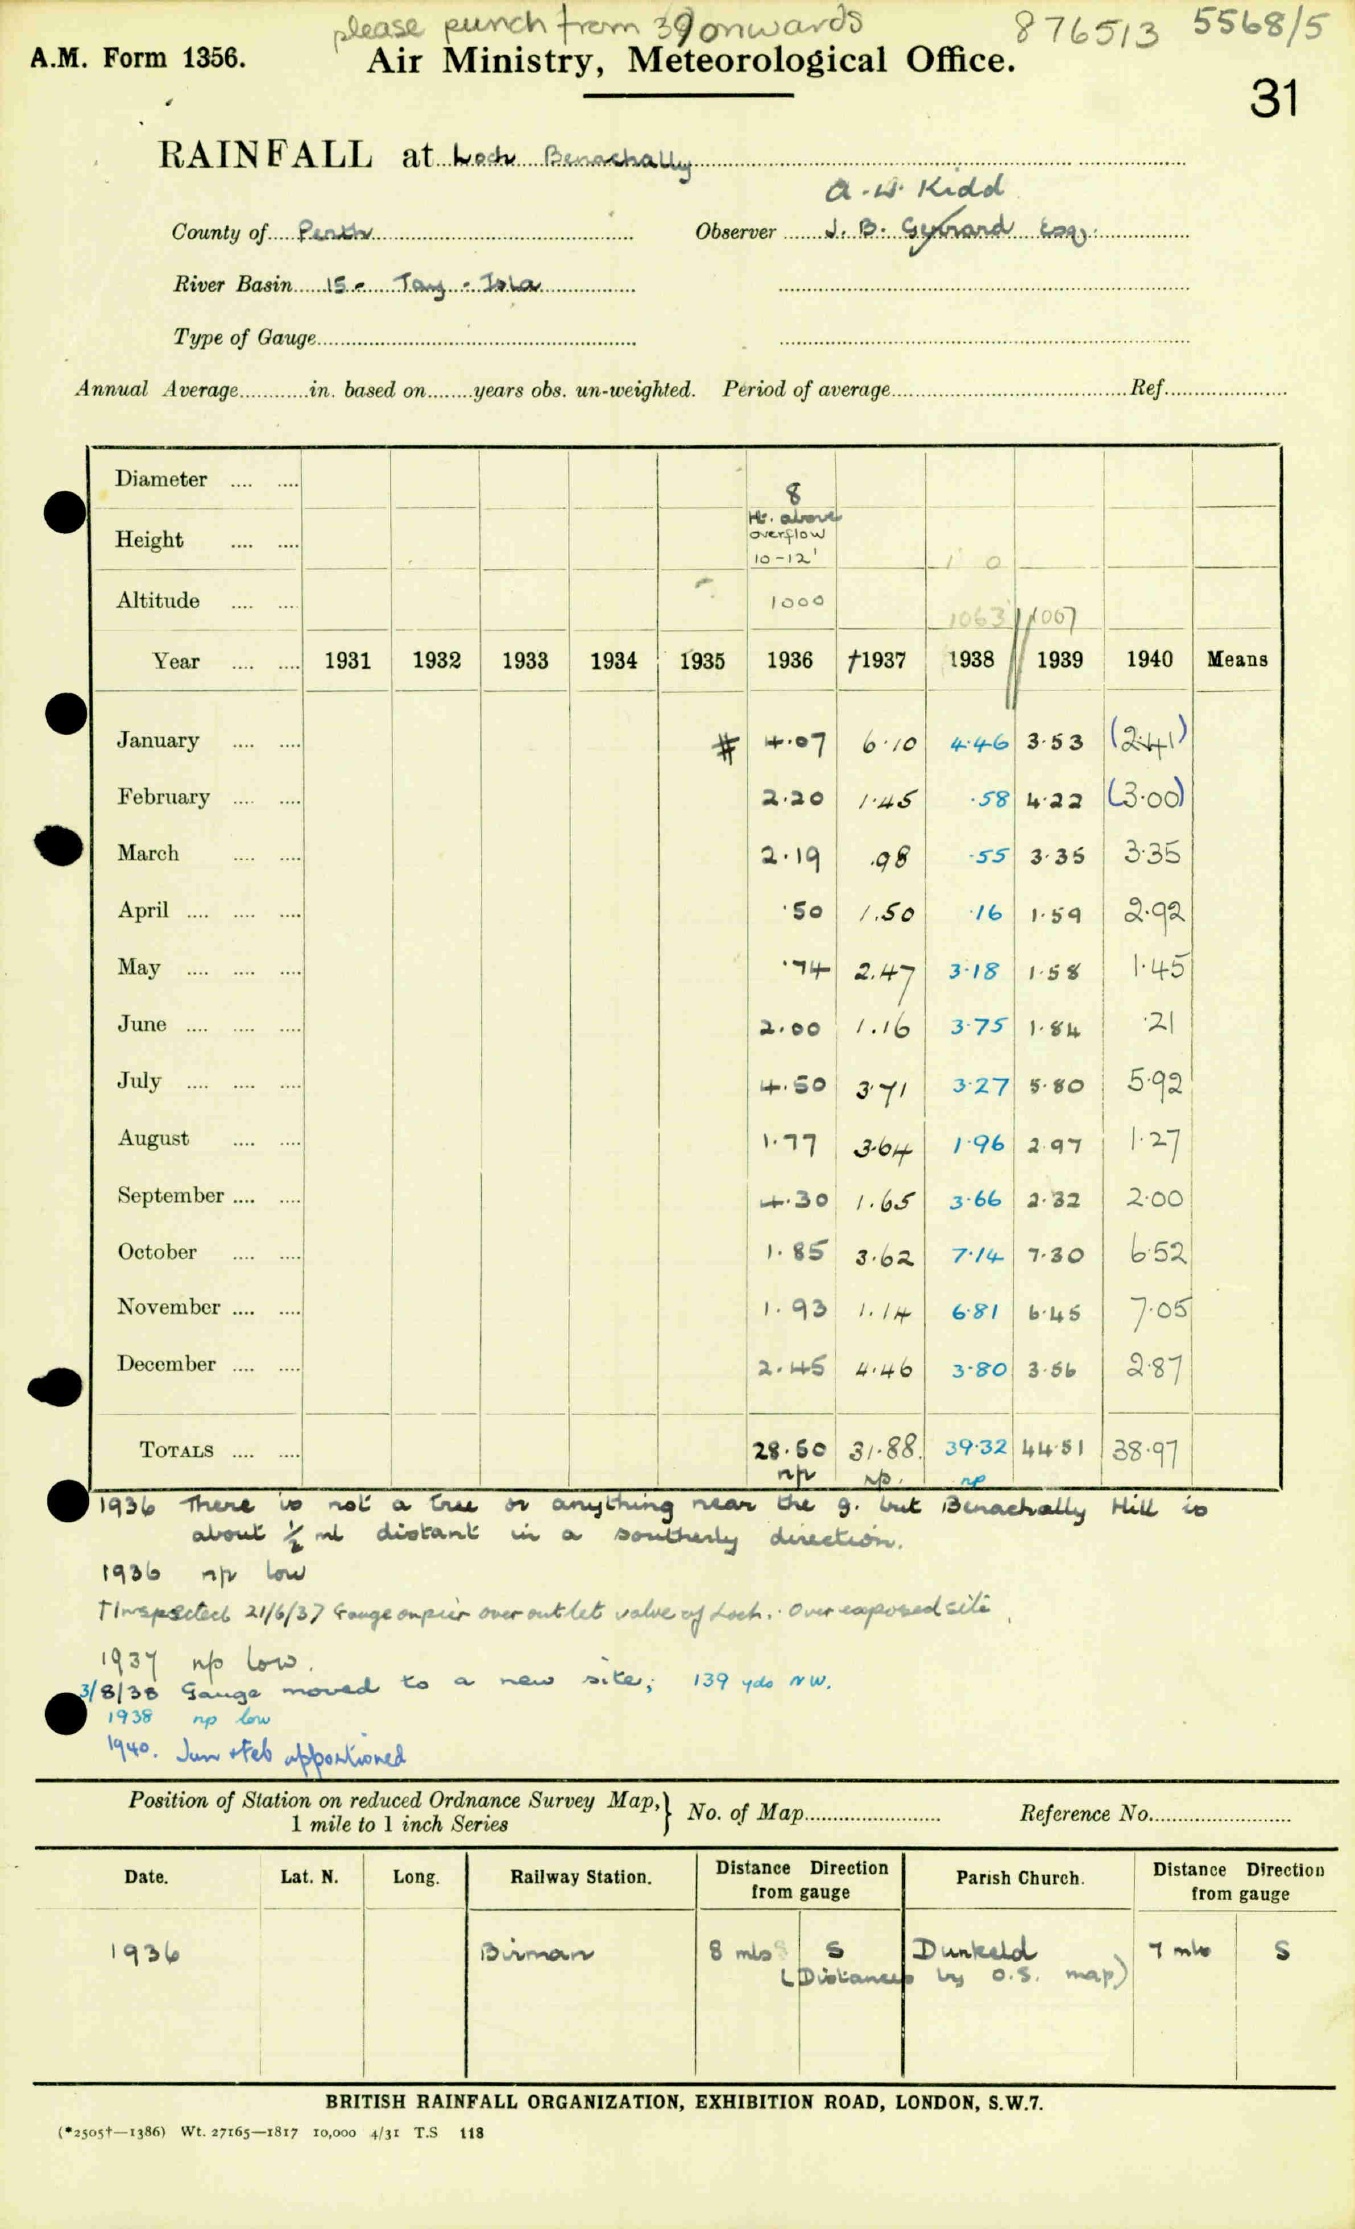 please punch from 39 onwards 876513 5568/5
A.M. Form 1356. Air Ministry, Meteorological Office.
31
RAINFALL at Loch Benachally
A. W. Kidd
County of Perth Observer J. B. Gerrard Esq.
River Basin 15 - Tay - Isla
Type of Gauge
Annual Average in. based on years obs. un-weighted. Period of average Ref.
Diameter 8
Height Ht. above overflow 10-12' 1 0
Altitude 1000 1063 1007
Year 1931 1932 1933 1934 1935 1936 †1937 1938 1939 1940 Means
January # 4.07 6.10 4.46 3.53 (2.41)
February 2.20 1.45 .58 4.22 (3.00)
March 2.19 .98 .55 3.35 3.35
April .50 1.50 .16 1.59 2.92
May .74 2.47 3.18 1.58 1.45
June 2.00 1.16 3.75 1.84 .21
July 4.50 3.71 3.27 5.80 5.92
August 1.77 3.64 1.96 2.97 1.27
September 4.30 1.65 3.66 2.32 2.00
October 1.85 3.62 7.14 7.30 6.52
November 1.93 1.14 6.81 6.45 7.05
December 2.45 4.46 3.80 3.56 2.87
TOTALS 28.50 31.88 39.32 44.51 38.97
np np. np
1936 There is not a tree or anything near the g. but Benachally Hill is
about ½ ml distant in a southerly direction.
1936 np low
† Inspected 21/6/37 Gauge on pier over outlet valve of Loch. Over exposed site
1937 np low.
3/8/38 Gauge moved to a new site; 139 yds NW.
1938 np low
1940. Jan + Feb apportioned
Position of Station on reduced Ordnance Survey Map, 1 mile to 1 inch Series } No. of Map Reference No.
Date. Lat. N. Long. Railway Station. Distance Direction from gauge Parish Church. Distance Direction from gauge
1936 Birnam 8 mls S Dunkeld 7 mls S
(Distances by O.S. map)
BRITISH RAINFALL ORGANIZATION, EXHIBITION ROAD, LONDON, S.W.7.
(*2505†—1386) Wt. 27165—1817 10,000 4/31 T.S 118